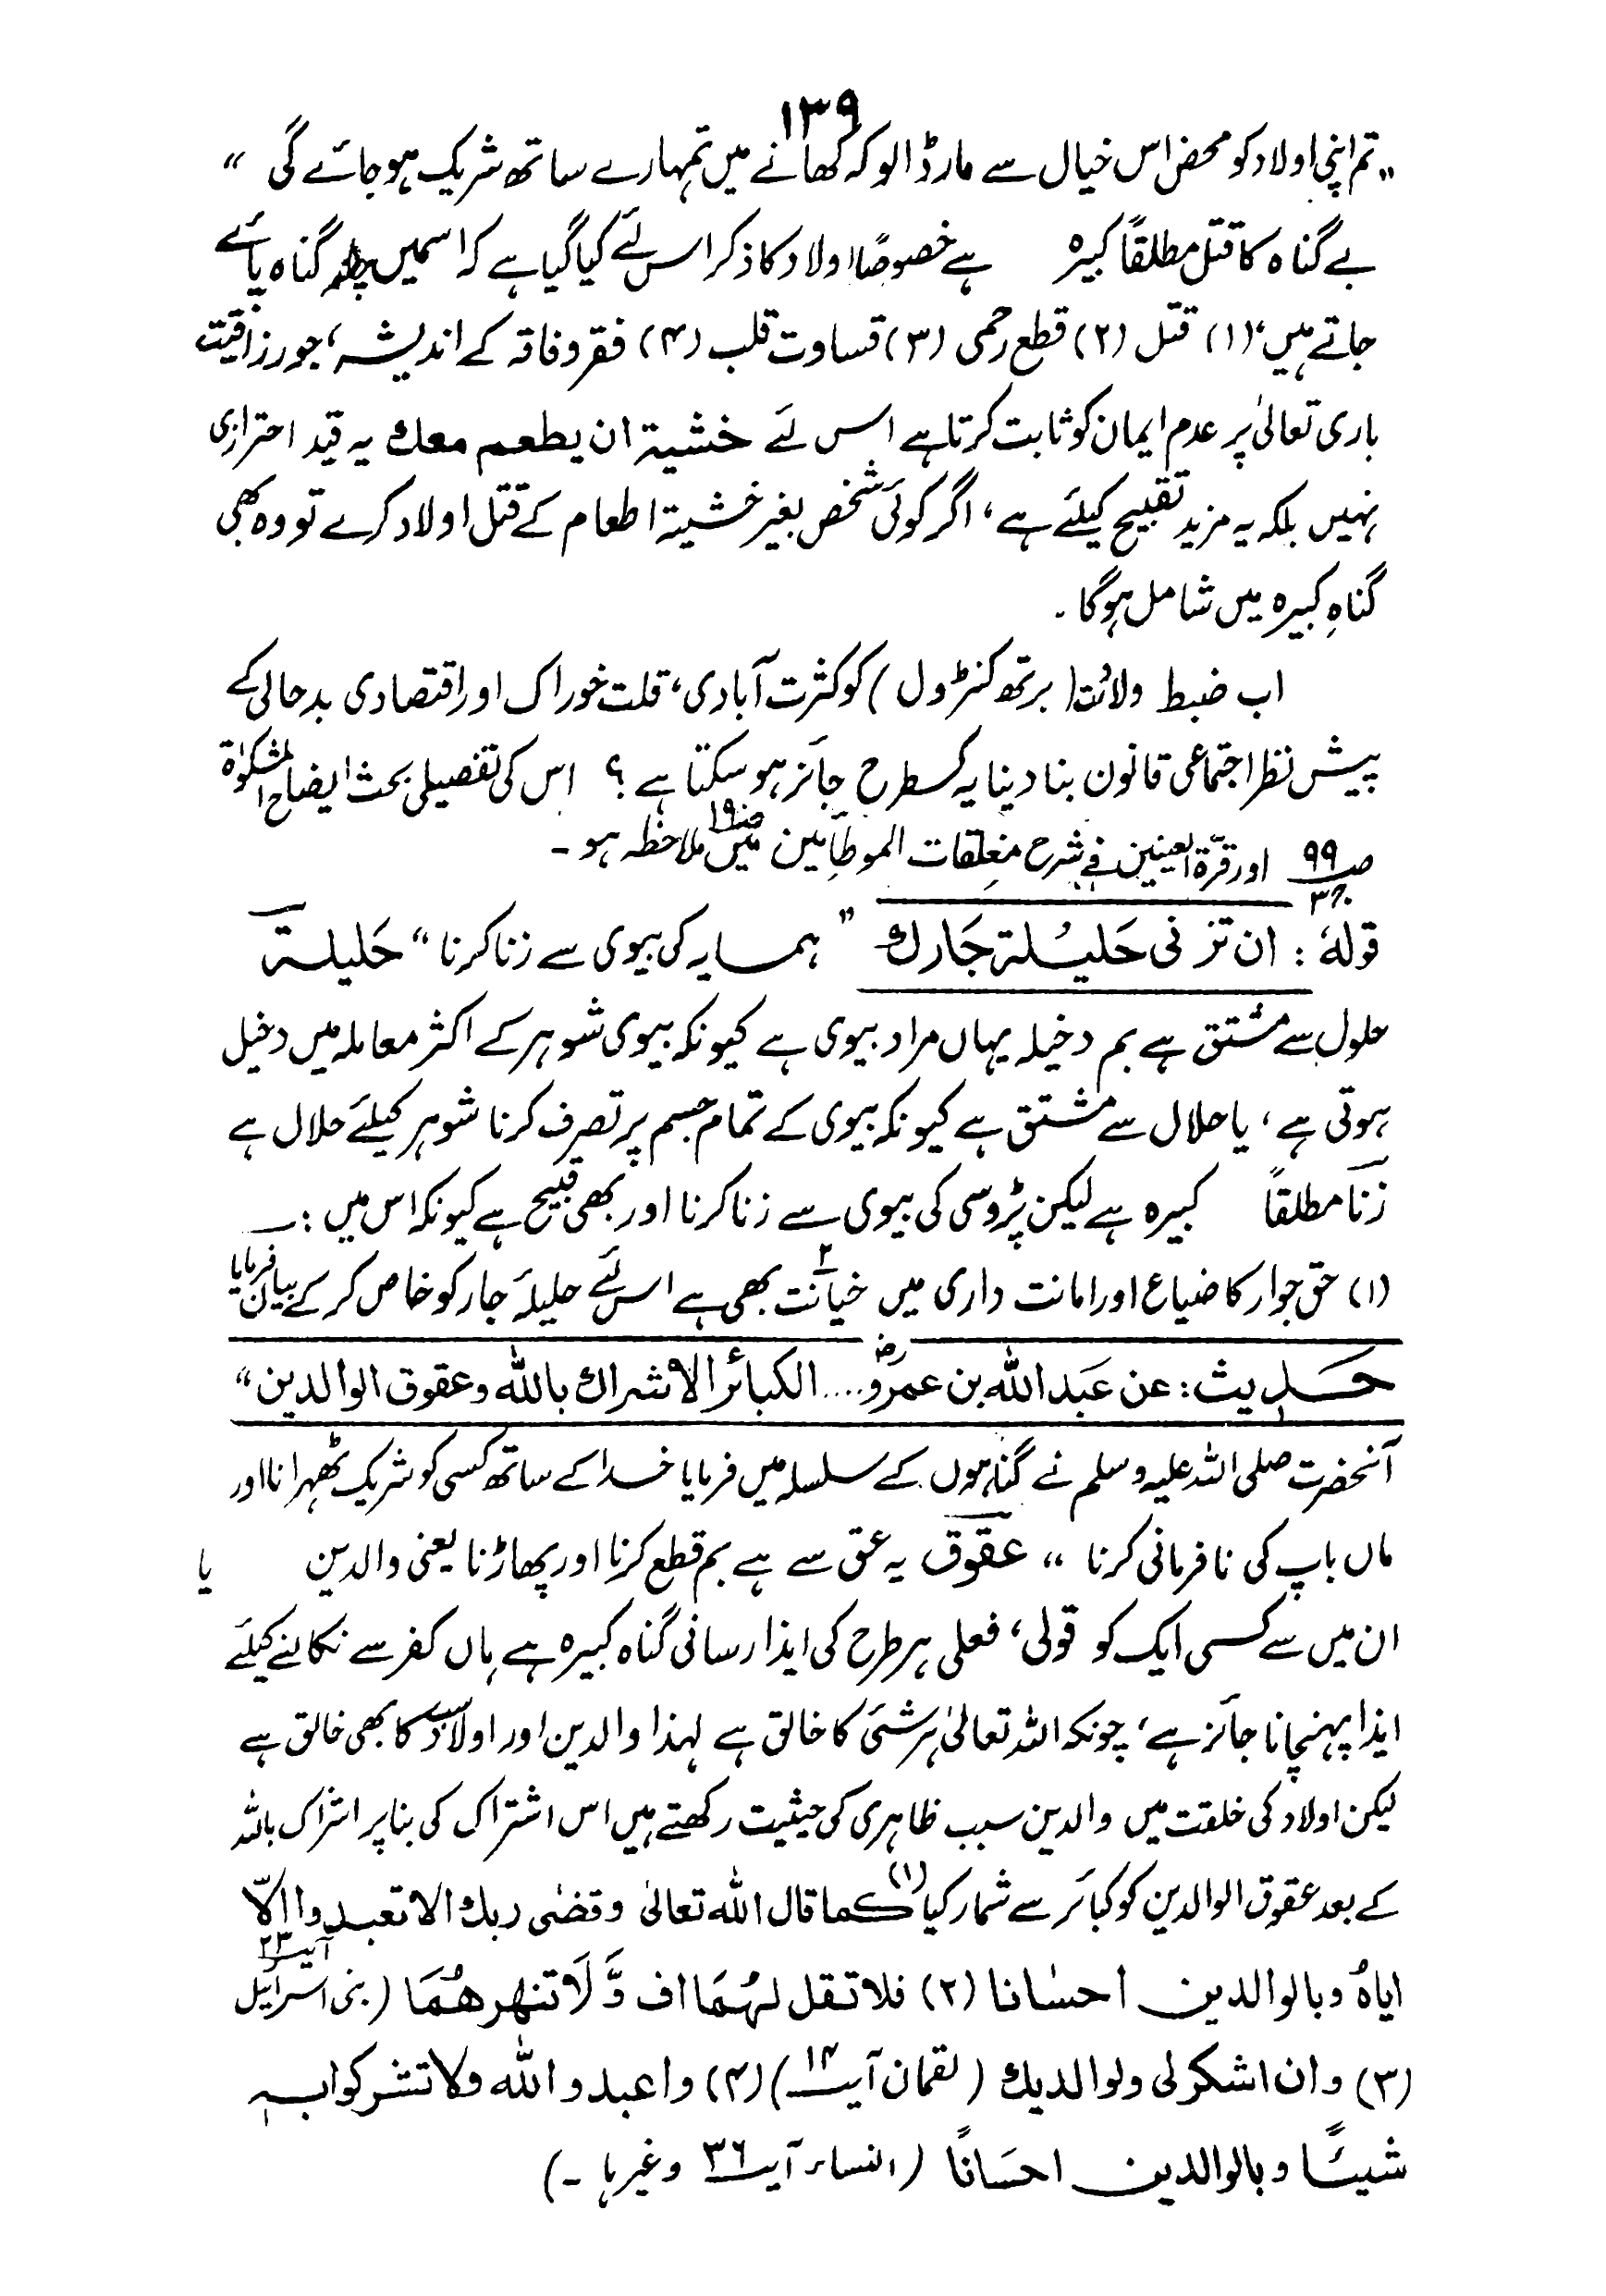 ۱۳۹
„تم اپنی اولاد کو محض اس خیال سے مار ڈالو کہ کھانے میں تمہارے ساتھ شریک ہو جائے گی “
بے گناہ کا قتل مطلقاً کبیرہ ہے خصوصًا اولاد کا ذکر اس لئے کیا گیا ہے کہ اسمیں چار گناہ پائے
جاتے ہیں، (۱) قتل (۲) قطع رحمی (۳) قساوت قلب (۴) فقر وفاقہ کے اندیشہ، جو رزاقیت
باری تعالیٰ پر عدم ایمان کو ثابت کرتا ہے اس لئے خشیۃ ان یطعم معك یہ قید احترازی
نہیں بلکہ یہ مزید تقبیح کیلئے ہے، اگر کوئی شخص بغیر خشیۃ اطعام کے قتل اولاد کرے تو وہ بھی
گناہِ کبیرہ میں شامل ہوگا ۔
اب ضبط ولادت (برتھ کنٹرول) کو کثرت آبادی، قلت خوراک اور اقتصادی بدحالی کے
پیش نظر اجتماعی قانون بنا دینا یہ کسطرح جائز ہو سکتا ہے ؟ اس کی تفصیلی بحث ایضاح المشکوٰۃ
صـ ۹۹ / ۳ج اور قرّۃ العینین فی شرح مغلقات الموطأین میں صـ ۱۹ ملاحظہ ہو ۔
قولہٗ : ان تزنی حَلیْلۃ جَارك ” ہمسایہ کی بیوی سے زنا کرنا “ حَلیلۃ
حلول سے مشتق ہے بم دخیلہ یہاں مراد بیوی ہے کیونکہ بیوی شوہر کے اکثر معاملہ میں دخیل
ہوتی ہے ، یا حلال سے مشتق ہے کیونکہ بیوی کے تمام جسم پر تصرف کرنا شوہر کیلئے حلال ہے
زنا مطلقاً کبیرہ ہے لیکن پڑوسی کی بیوی سے زنا کرنا اور بھی قبیح ہے کیونکہ اس میں :ــ
(۱) حق جوار کا ضیاع اور امانت داری میں ۲ خیانت بھی ہے اس لئے حلیلۂ جار کو خاص کرکے بیان فرمایا
حَدِیث : عن عَبد اللّٰہ بن عمروؓ .... الکبائر الاشراك باللّٰہ وعقوق الوالدین “
آنحضرت صلی اللہ علیہ وسلم نے گناہوں کے سلسلہ میں فرمایا خدا کے ساتھ کسی کو شریک ٹھہرانا اور
ماں باپ کی نافرمانی کرنا “ عقوق یہ عق سے ہے بم قطع کرنا اور پھاڑنا یعنی والدین یا
ان میں سے کسی ایک کو قولی، فعلی ہر طرح کی ایذا رسانی گناہ کبیرہ ہے ہاں کفر سے نکالنے کیلئے
ایذا پہنچانا جائز ہے، چونکہ اللہ تعالیٰ ہر شئی کا خالق ہے لہذا والدین اور اولاد سب کا بھی خالق ہے
لیکن اولاد کی خلقت میں والدین سبب ظاہری کی حیثیت رکھتے ہیں اس اشتراک کی بنا پر اشراک باللہ
کے بعد عقوق الوالدین کو کبائر سے شمار کیا (۱) کما قال اللّٰہ تعالیٰ وقضٰی ربك الا تعبدوا الّا
ایاہُ وبالوالدین احسٰانا (۲) فلا تقل لہُمَا اف وَّلَا تنھرھُمَا (بنی اسرائیل آیت ۲۳
(۳) وان اشکر لی ولوالدیك (لقمان آیت ۱۴) (۴) واعبدوا اللّٰہ ولا تشرکوا بہٖ
شیئًا وبالوالدین احسَاناً (النساء آیت ۳۶ وغیرہا ۔)